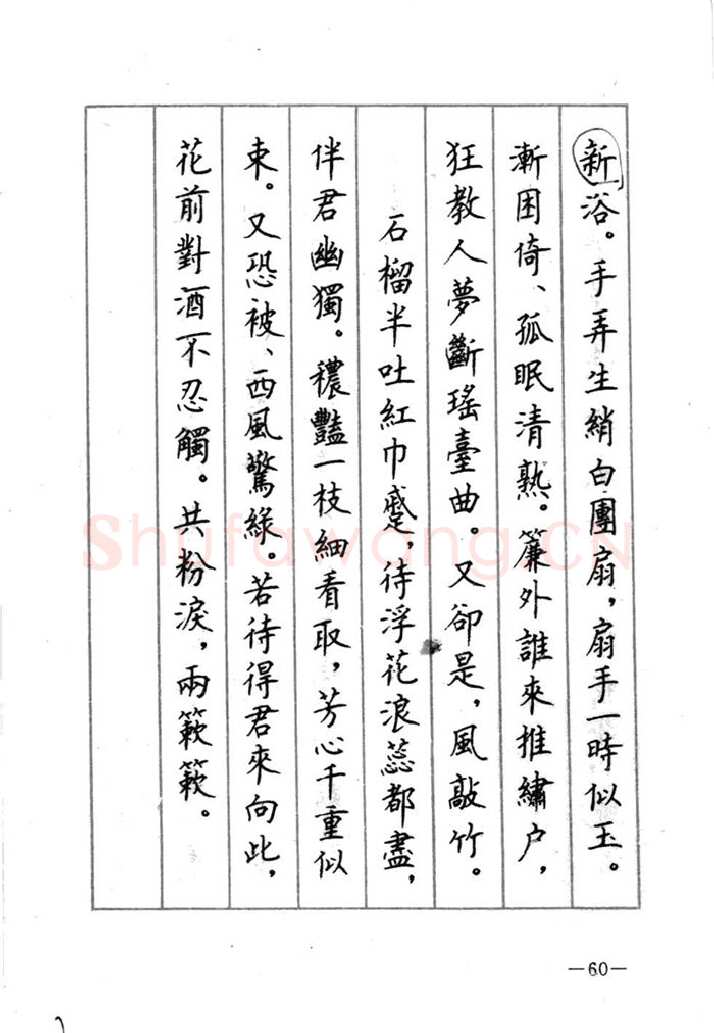 新浴。手弄生綃白團扇，扇手一時似玉。
漸困倚、孤眠清熟。簾外誰來推繡户，
狂教人夢斷瑤臺曲。又卻是，風敲竹。
石榴半吐紅巾蹙，待浮花浪蕊都盡，
伴君幽獨。穠豔一枝細看取，芳心千重似
束。又恐被、西風驚綠。若待得君來向此，
花前對酒不忍觸。共粉淚，兩簌簌。
Shufawang.CN
—60—